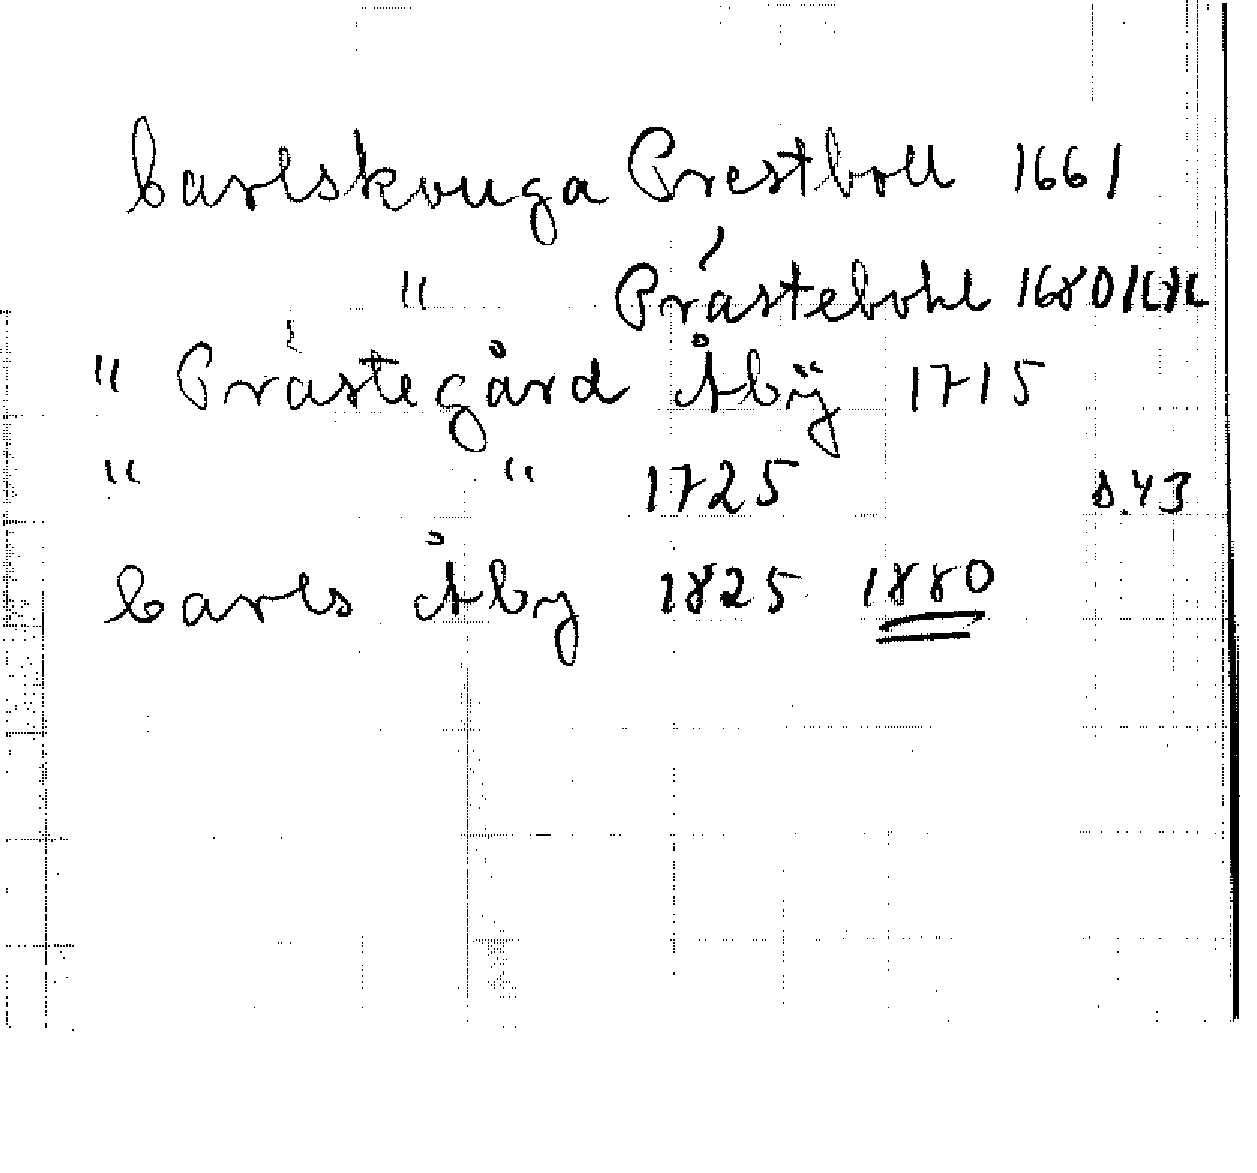 Carlskouga Prestboll 1661
" Prästebohl 1680
" Prästegård Åbÿ 1715
" " 1725 s.43
Carls Åby 1825 1880